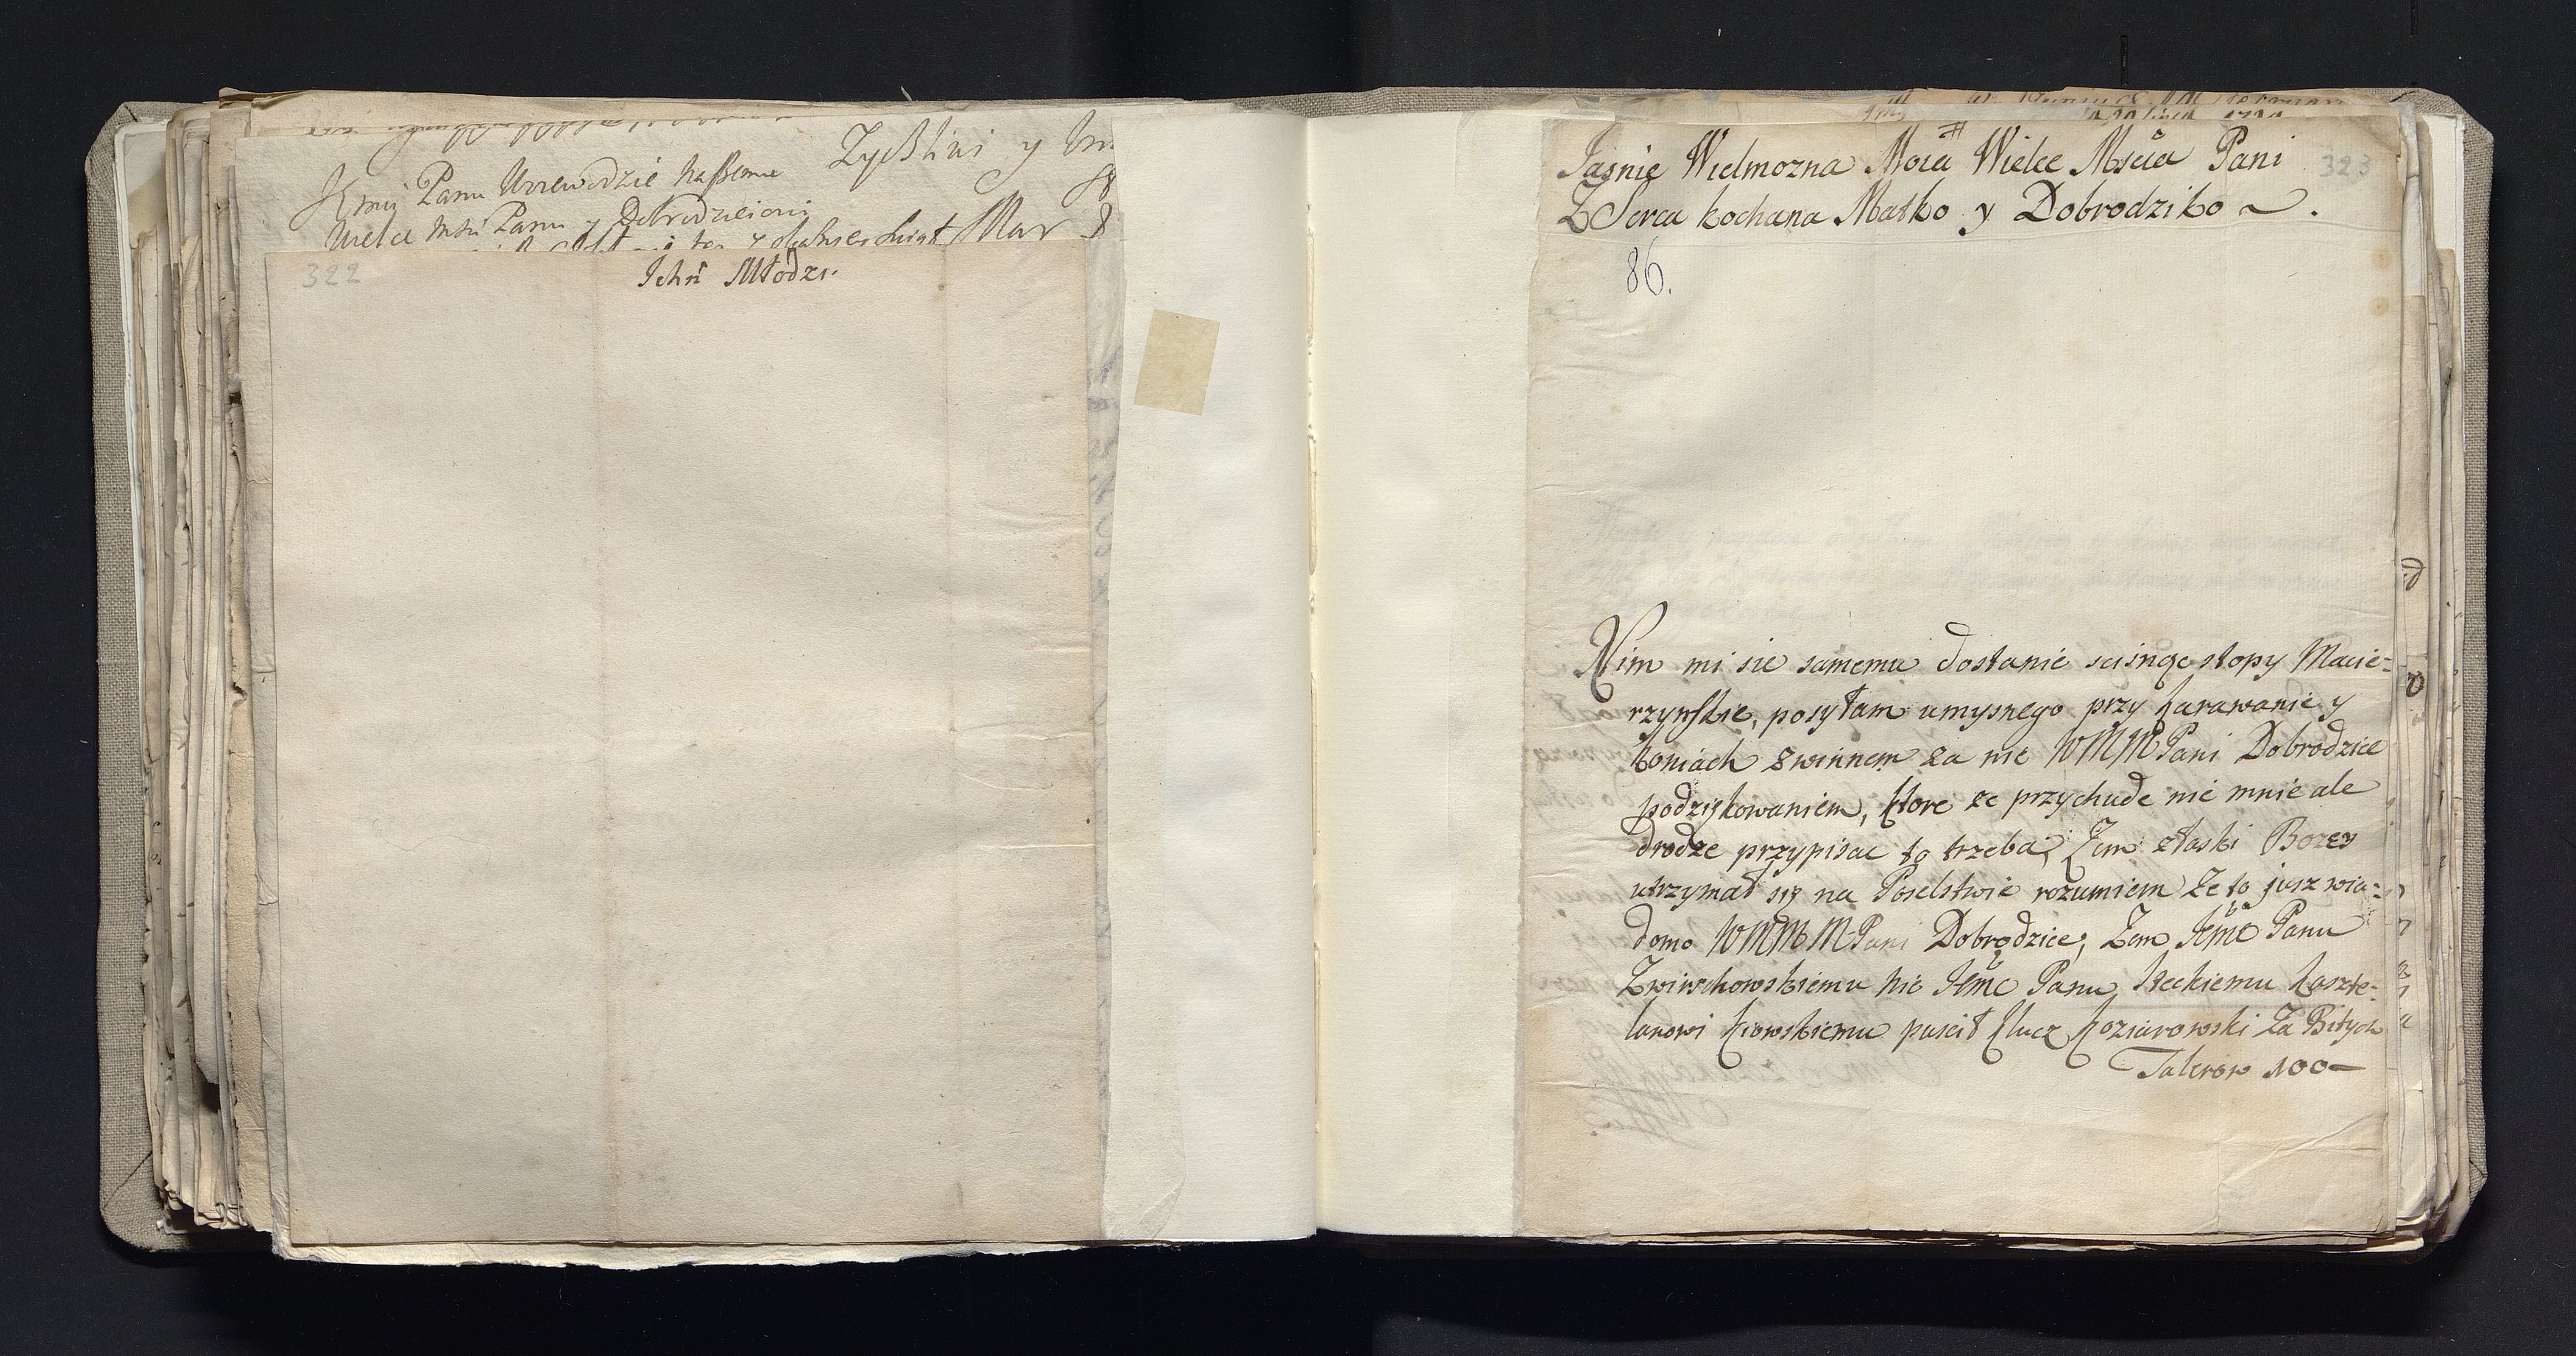 Zyckliwi y
Jmći Panu Woiewodzie naszemu
Wielce Mści Panu y Dobrodzieiowi
322
Ichń Młodzi.
323
Jasnie Wielmozna Moia Wielce Mścia Pani
Z Serca kochana Matko y Dobrodziko
86.
Nim mi sie samemu dostanie scisnąc stopy Macie=
rzynskie, posyłam umysnego przy karawanie y
koniach z winnem za nie WMMPani Dobrodzice
podziękowaniem, ktore ze przychude nie mnie ale
drodze przypisac to trzeba, Zem z łaski Bozey
utrzymał się na Poselstwie rozumiem ze to jusz wia=
domo WMMMPani Dobrodzice, Zem Jemc Panu
Zwirschowskiemu nie Jemc Panu Steckiemu kaszte=
lanowi kiowskiemu puscił klucz koziarowski Za Bitych
Talerow 100